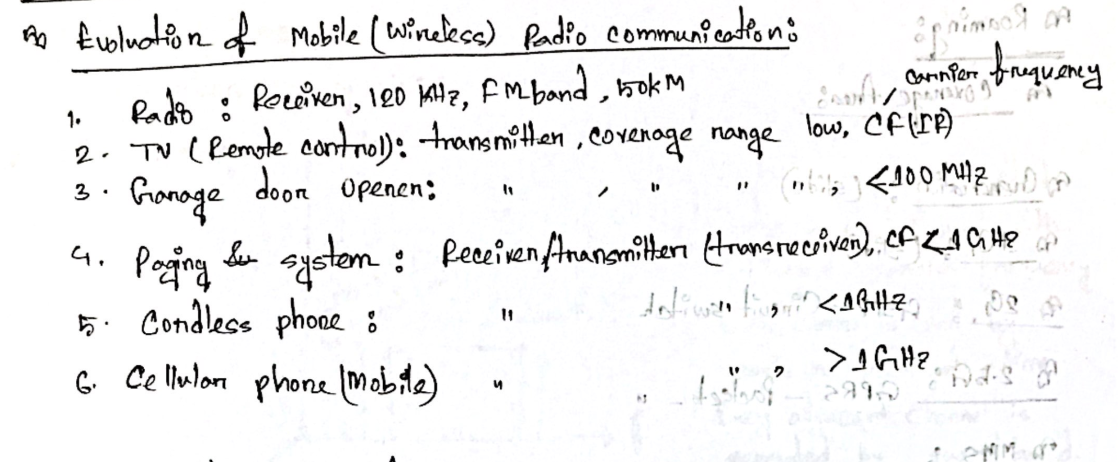 Evoluation of Mobile (Wireless) Radio communication:
carrier frequency
1. Radio : Receiver, 120 KHz, FM band, 50kM
2. TV (Remote control): transmitter, coverage range low, CF(IR)
3. Garage door Opener: " , " " ("), <100 MHz
4. Paging system : Receiver/transmitter (transreceiver), CF < 1 GHz
5. Cordless phone : " " , <1GHz
6. Cellular phone (Mobile) " " , >1GHz